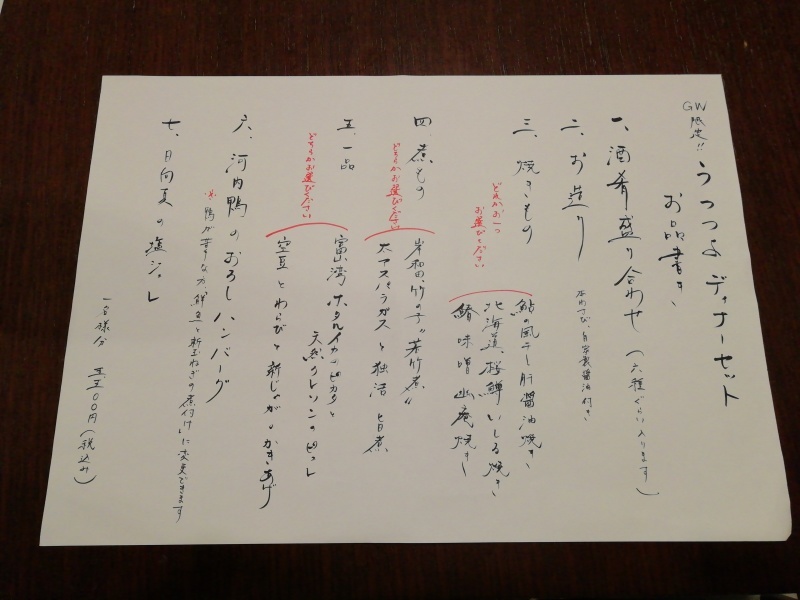 GW限定!!
うつつよ ディナーセット
お品書き
一、酒肴盛り合わせ (六種ぐらい入ります)
二、お造り
本わさび、自家製醤油付き
三、焼きもの
どれかお一つ
お選びください
鮎の風干し肝醤油焼き
北海道、桜鱒いしる焼き
鰆味噌幽庵焼き
四、煮もの
どちらかお選びください
岸和田、竹の子〝若竹煮〟
太アスパラガスと独活 旨煮
五、一品
どちらかお選びください
富山湾ホタルイカのピカタと
天然クレソンのピュレ
空豆とわらびと新じゃがのかきあげ
六、河内鴨のおろしハンバーグ
※鴨が苦手な方、鮮魚と新玉ねぎの煮付けに変更できます
七、日向夏の塩ジュレ
一名様分 五五〇〇円(税込み)